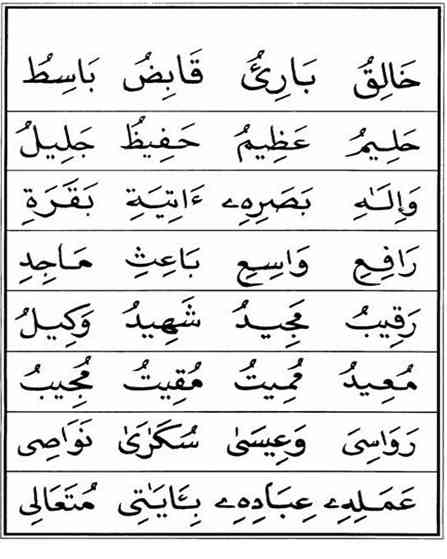 خَالِقُ بَارِئُ قَابِضُ بَاسِطُ
حَلِيمُ عَظِيمُ حَفِيظُ جَلِيلُ
وَإِلَٰهِ بَصَرِهِۦ ءَاتِيَةِ بَقَرَةِ
رَافِعِ وَاسِعِ بَاعِثِ مَاجِدِ
رَقِيبُ مَجِيدُ شَهِيدُ وَكِيلُ
مُعِيدُ مُمِيتُ مُقِيتُ مُجِيبُ
رَوَاسِىَ وَعِيسَىٰ سُكَٰرَىٰ نَوَاصِى
عَمَلِهِۦ عِبَادِهِۦ بِـَٔايَٰتِى مُتَعَالِى